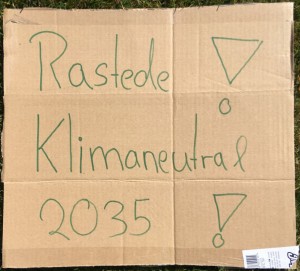 Rastede !
Klimaneutral
2035 !